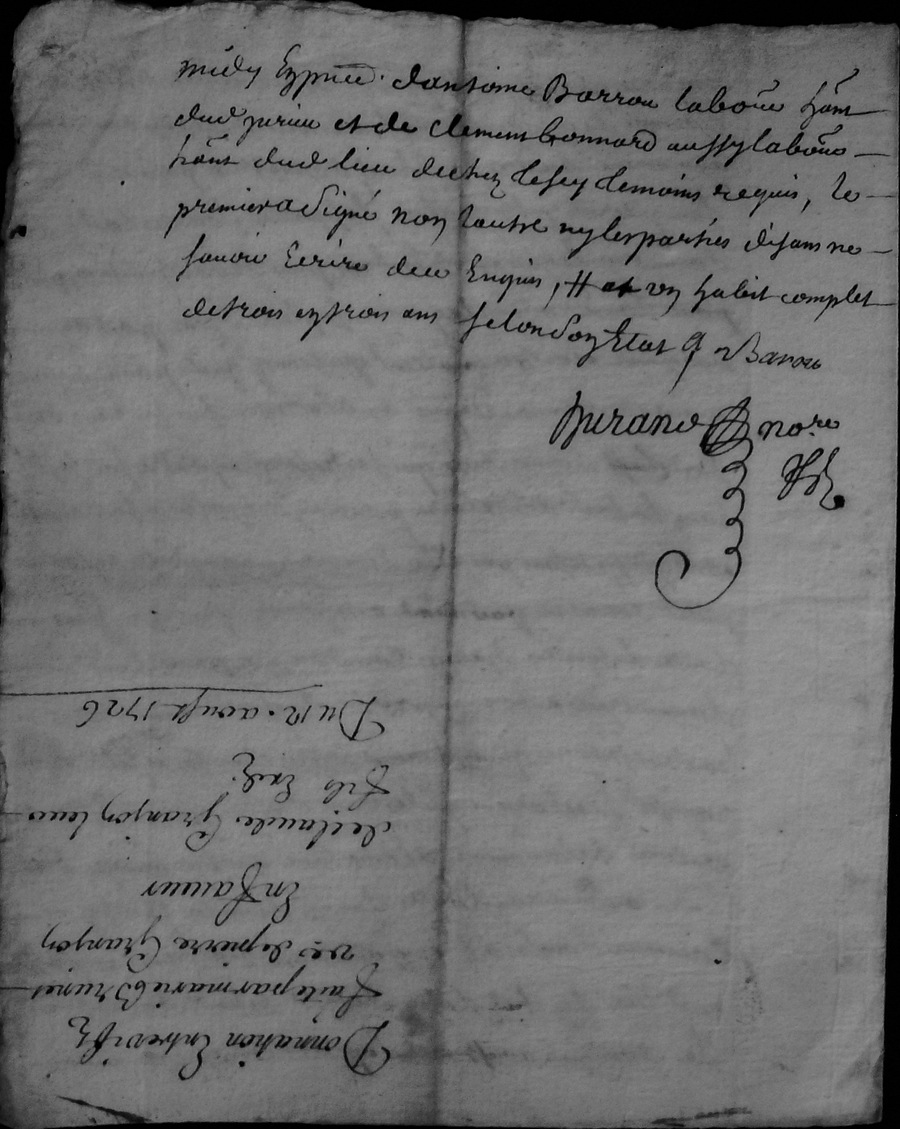 midy En pnce. d'antoine Barrou labour. hant
dud jurieu et de clement bonnard aussy labour.
hant dud lieu de chez lesey temoins requis, le
premier a signé non l'autre ny les parties disans ne
savoir Ecrire deue Enquis, # et un habit complet
de trois en trois ans selon son Etat
Barrou
Durand nore
Donnation Entrevifz
faite par marie Brunet
ve de pierre Granjon
En faveur
de claude Granjon leur
fils
Du 12. aoust 1726